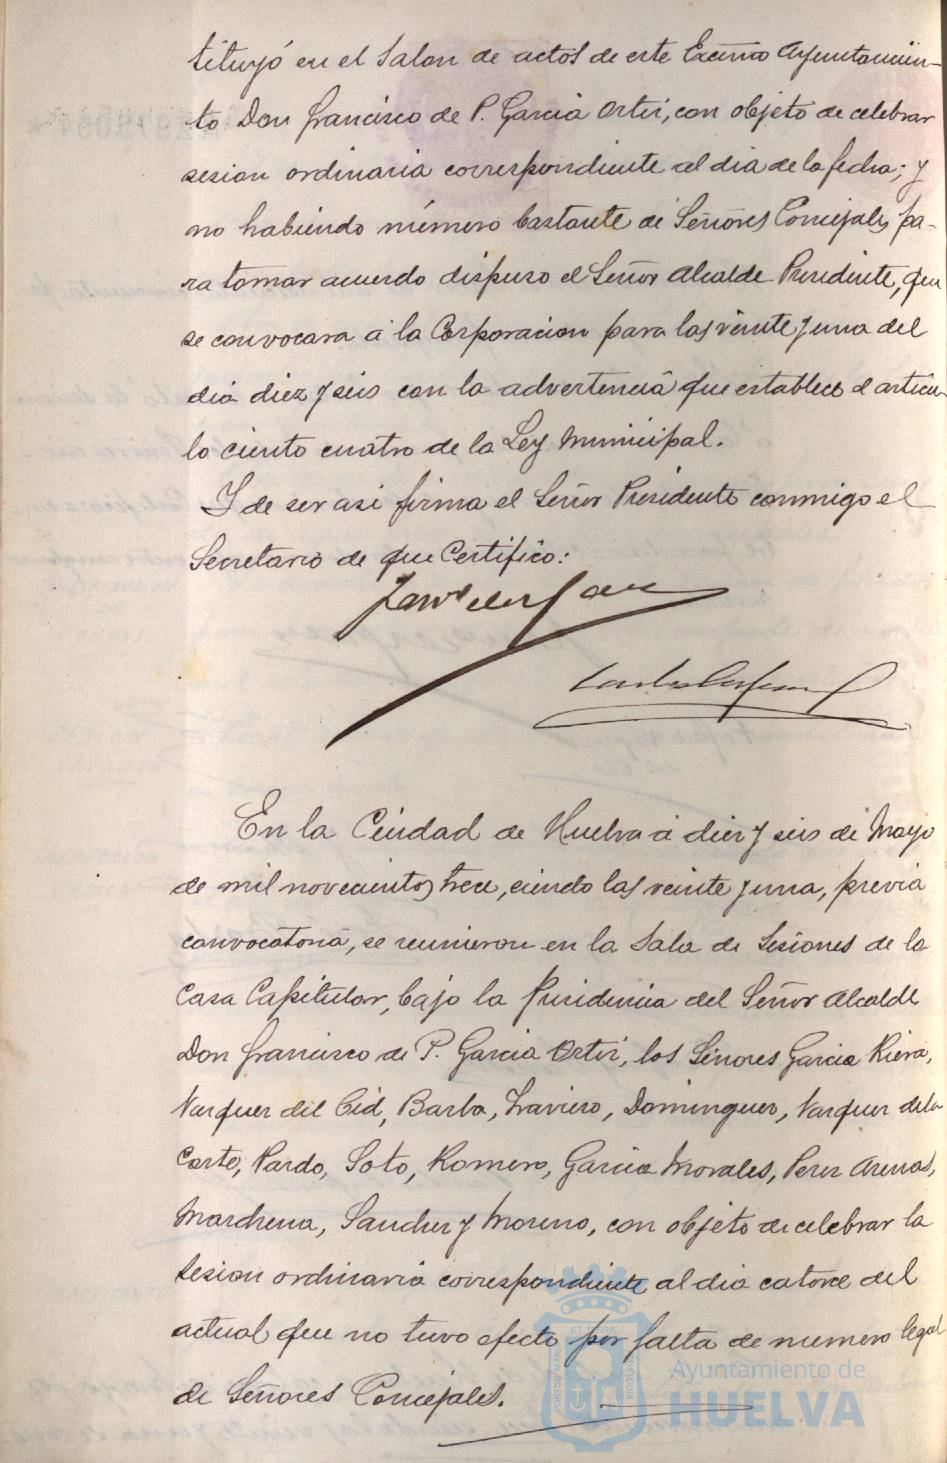 tituyó en el Salon de actos de este Excmo Ayuntamien-
to Don Francisco de P. Garcia Ortiz, con objeto de celebrar
sesion ordinaria correspondiente al dia de la fecha; y
no habiendo número bastante de Señores Concejales pa-
ra tomar acuerdo dispuso el Señor Alcalde Presidente, que
se convocara á la Corporacion para las veinte y una del
dia diez y seis con la advertencia que establece el articu-
lo ciento cuatro de la Ley Municipal.
Y de ser asi firma el Señor Presidente conmigo el
Secretario de que Certifico:
En la Ciudad de Huelva á diez y seis de Mayo
de mil novecientos trece, siendo las veinte y una, previa
convocatoria, se reunieron en la Sala de Sesiones de la
Casa Capitular, bajo la Presidencia del Señor Alcalde
Don Francisco de P. Garcia Ortiz, los Señores Garcia Riera,
Vazquez del Cid, Barba, Traviero, Dominguez, Vazquez de la
Corte, Pardo, Soto, Romero, Garcia Morales, Perez Arenas,
Marchena, Sanchez y Moreno, con objeto de celebrar la
sesion ordinaria correspondiente al dia catorce del
actual que no tuvo efecto por falta de numero legal
de Señores Concejales.
Ayuntamiento de
HUELVA